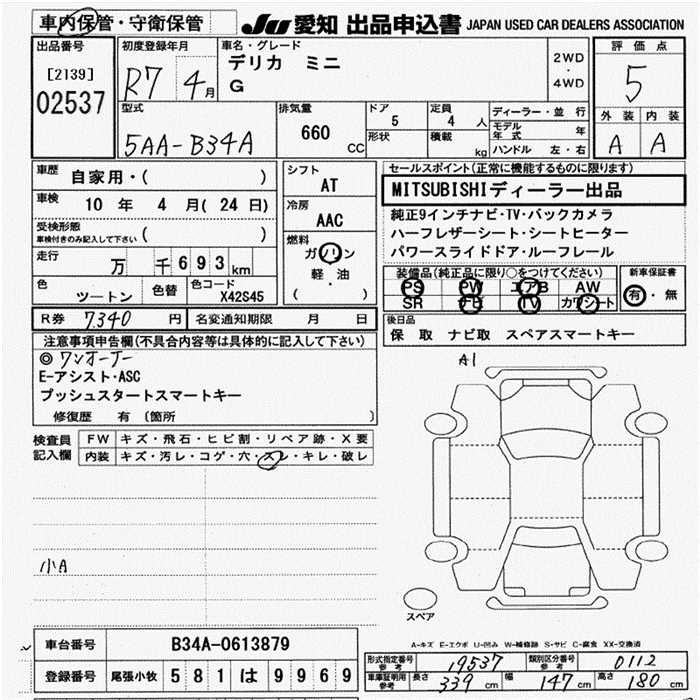 車内保管・守衛保管
JU 愛知 出品申込書 JAPAN USED CAR DEALERS ASSOCIATION
出品番号
[2139]
02537
初度登録年月
R7 4月
車名・グレード
デリカ ミニ
G
2WD
・
4WD
評価点
5
外装 内装
A A
型式
5AA-B34A
排気量
660 CC
ドア
5
形状
定員
4 人
積載
kg
ディーラー・並行
モデル年式 年
ハンドル 左・右
車歴 自家用・( )
車検 10 年 4 月(24 日)
受検形態
車検付きのみ記入して下さい ( )
走行 万 千 693 km
色 ツートン 色替 色コード X42S45
シフト
AT
冷房
AAC
燃料
ガソリン
軽・油
( )
セールスポイント(正常に機能するものに限ります)
MITSUBISHIディーラー出品
純正9インチナビ・TV・バックカメラ
ハーフレザーシート・シートヒーター
パワースライドドア・ルーフレール
装備品(純正品に限り○をつけてください)
PS PW エアB AW
SR ナビ TV カワシート
新車保証書
有・無
R券 7340 円 名変通知期限 月 日
後日品
保 取 ナビ取 スペアスマートキー
注意事項申告欄(不具合内容等は具体的に記入して下さい)
◎ワンオーナー
E-アシスト・ASC
プッシュスタートスマートキー
修復歴 有 〔箇所 〕
検査員記入欄
FW キズ・飛石・ヒビ割・リペア跡・X要
内装 キズ・汚レ・コゲ・穴・スレ・キレ・破レ
小A
A1
スペア
A-キズ E-エクボ U-凹み W-補修跡 S-サビ C-腐食 XX-交換済
車台番号 B34A-0613879
登録番号 尾張小牧 581 は 9969
形式指定番号 参考 19537 類別区分番号 参考 0112
車庫証明用 参考 長さ 339 cm 幅 147 cm 高さ 180 cm